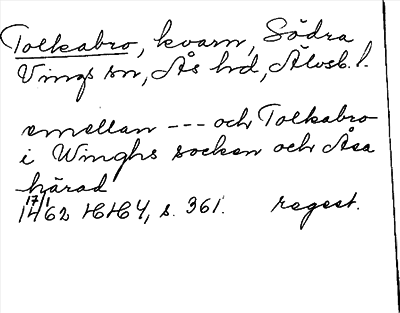 Tolkabro, kvarn, Södra
Vings sn, Ås hd, Älvsb. l.
emellan --- och Tolkabro
i Winghs socken och Åsa
härad
17/1 1462 HH4, s. 361. regest.